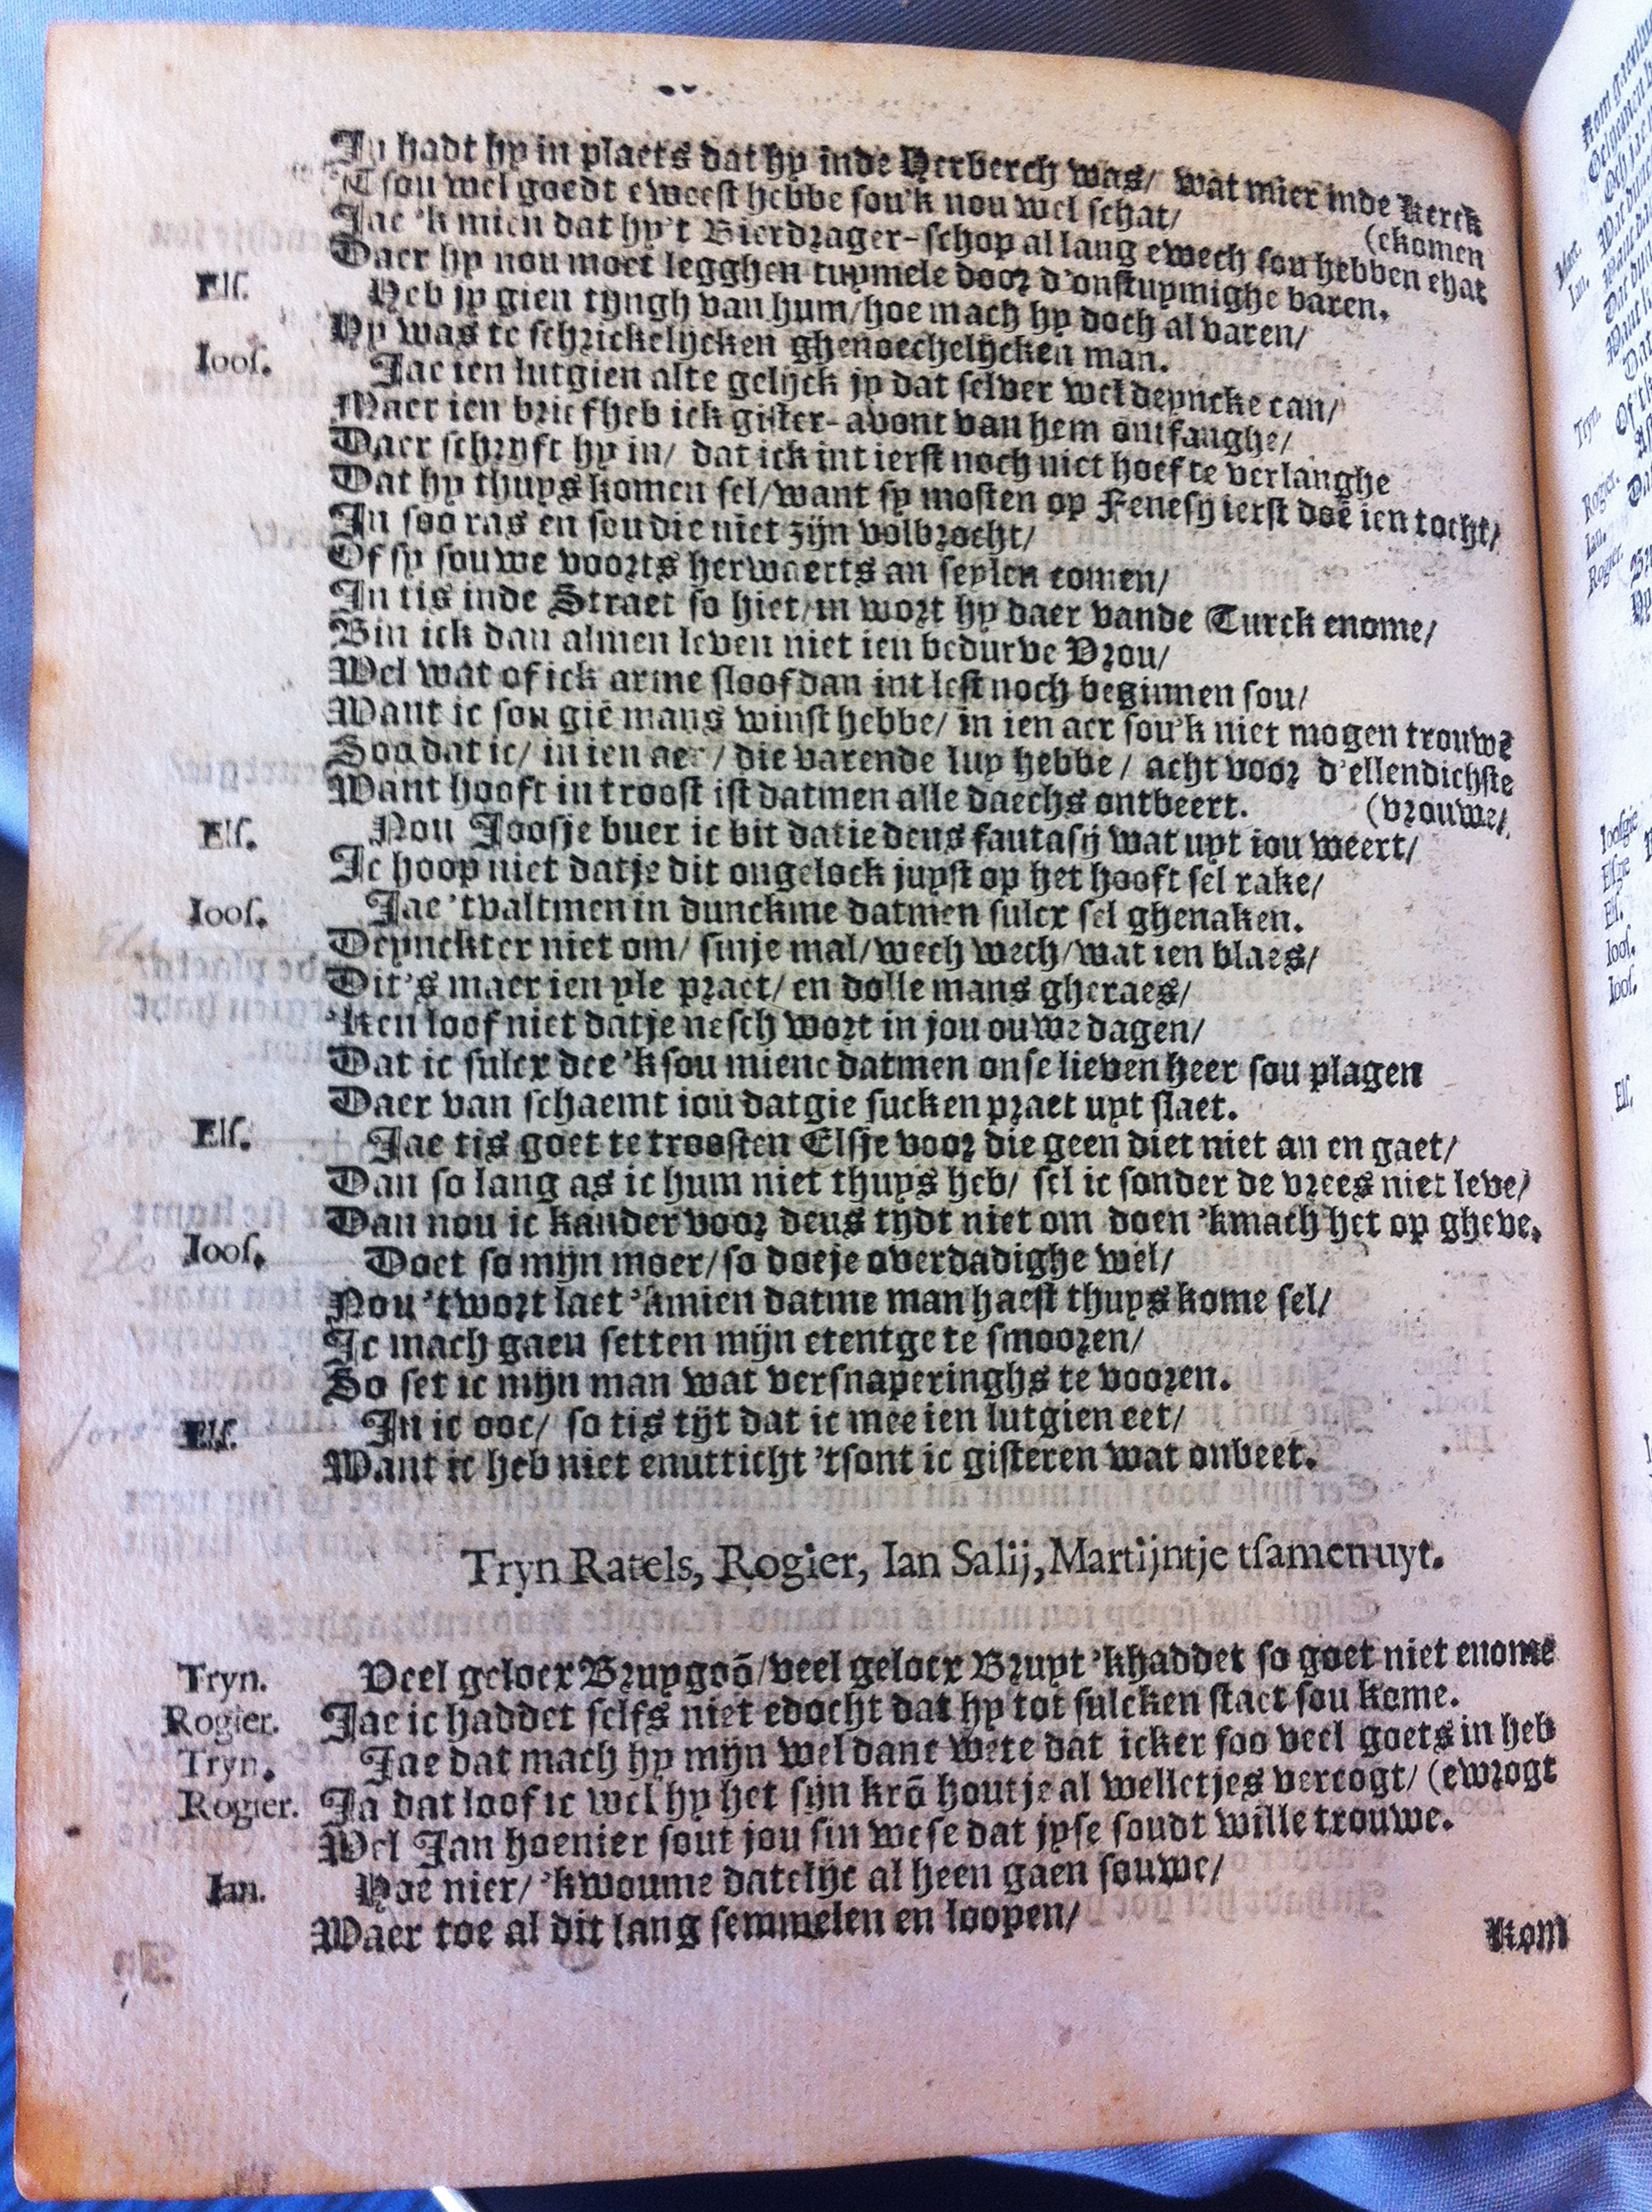 In hadt hy in plaets dat hy inde Herberch was/ wat mier inde kerck
(ekomen
T sou wel goedt eweest hebbe sou'k nou wel schat/
Jae 'k mien dat hy't Bierdrager-schop al lang ewech sou hebben ehat
Daer hy nou moet legghen tuymele door d'onstuymighe baren.
Els. Heb jy gien tyngh van hum/ hoe mach hy doch al varen/
Hy was te schrickelijcken ghenoechelijcken man.
Ioos. Jae ien lutgien alte gelijck jy dat selver wel deyncke can/
Maer ien brief heb ick gister-avont van hem ontfanghe/
Daer schryft hy in/ dat ick int ierst noch niet hoef te verlanghe
Dat hy thuys komen sel/ want sy mosten op Fenesy ierst doē ien tocht/
In soo ras en sou die niet zijn volbrocht/
Of sy souwe voorts herwaerts an seylen comen/
In tis inde Straet so hiet/ in wort hy daer vande Turck enome/
Bin ick dan al men leven niet ien bedurve Vrou/
Wel wat of ick arme sloof dan int lest noch beginnen sou/
Want ic sou giē mans winst hebbe/ in ien aer sou'k niet mogen trouwē
Soo dat ic/ in ien aer/ die varende luy hebbe/ acht voor d'ellendichste
(vrouwe/
Want hooft in troost ist datmen alle daechs ontbeert.
Els. Nou Joosje buer ic bit datie deus fantasij wat uyt iou weert/
Ic hoop niet datje dit ongelock juyst op het hooft sel rake/
Ioos. Jae 'tvaltmen in dunckme datmen sulcx sel ghenaken.
Deynckter niet om/ sinje mal/ wech wech/ wat ien blaes/
Dit's maer ien yle praet/ en dolle mans gheraes/
'Ken loof niet datje nesch wort in jou ouwe dagen/
Dat ic sulcx dee 'k sou miene datmen onse lieven heer sou plagen
Daer van schaemt iou datgie sucken praet uyt slaet.
Els. Jae tis goet te troosten Elsje voor die geen diet niet an en gaet/
Dan so lang as ic hum niet thuys heb/ sel ic sonder de vrees niet leve/
Dan nou ic kander voor deus tydt niet om doen 'kmach het op gheve.
Ioos. Doet so mijn moer/ so doeje overdadighe wel/
Nou 't wort laet 'kmien datme man haest thuys kome sel/
Ic mach gaen setten mijn etentge te smooren/
So set ic mijn man wat versnaperinghs te vooren.
Els. In ic ooc/ so tis tijt dat ic mee ien lutgien eet/
Want ic heb niet enutticht 'tsont ic gisteren wat onbeet.
Tryn Ratels, Rogier, Ian Salij, Martijntje tsamen uyt.
Tryn. Veel gelocx Bruygoō/ veel gelocx Bruyt 'khaddet so goet niet enome
Rogier. Jae ic haddet selfs niet edocht dat hy tot sulcken staet sou kome.
Tryn. Jae dat mach hy mijn wel danc wete dat icker soo veel goets in heb
(ewrogt
Rogier. Ja dat loof ic wel hy het sijn krō houtje al welletjes vercogt/
Wel Jan hoenier sout jou sin wese dat jyse soudt wille trouwe.
Ian. Hoe nier/ 'kwoume datelijc al heen gaen souwe/
Waer toe al dit lang semmelen en loopen/
Kom